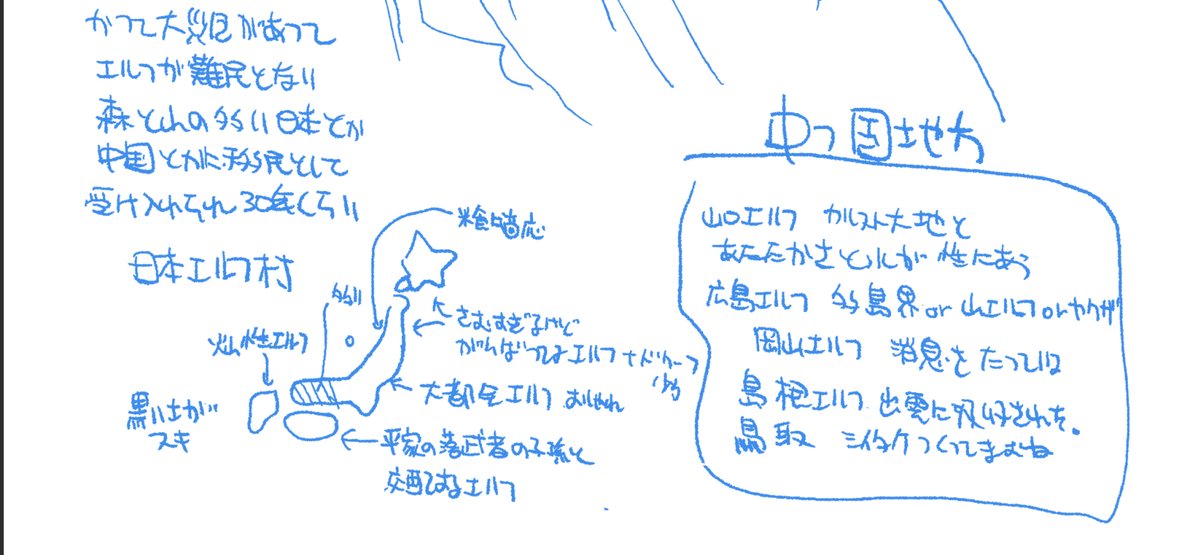 かつて大災厄があって
エルフが難民となり
森と山の多い日本とか
中国とかに移民として
受け入れられ30年くらい
日本エルフ村
米食適応
多い
さむすぎるけど
がんばってるエルフ+ドワーフ
火山性エルフ
大都民エルフ おしゃれ
黒い土が
スキ
平家の落武者の子孫と
交配してるエルフ
中つ国地方
山口エルフ カルスト大地と
あたたかさと が性にあう
広島エルフ 多島界or山エルフorヤクザ
岡山エルフ 消息をたっている
島根エルフ 出雲に吸収された。
鳥取 シイタケつくってますね